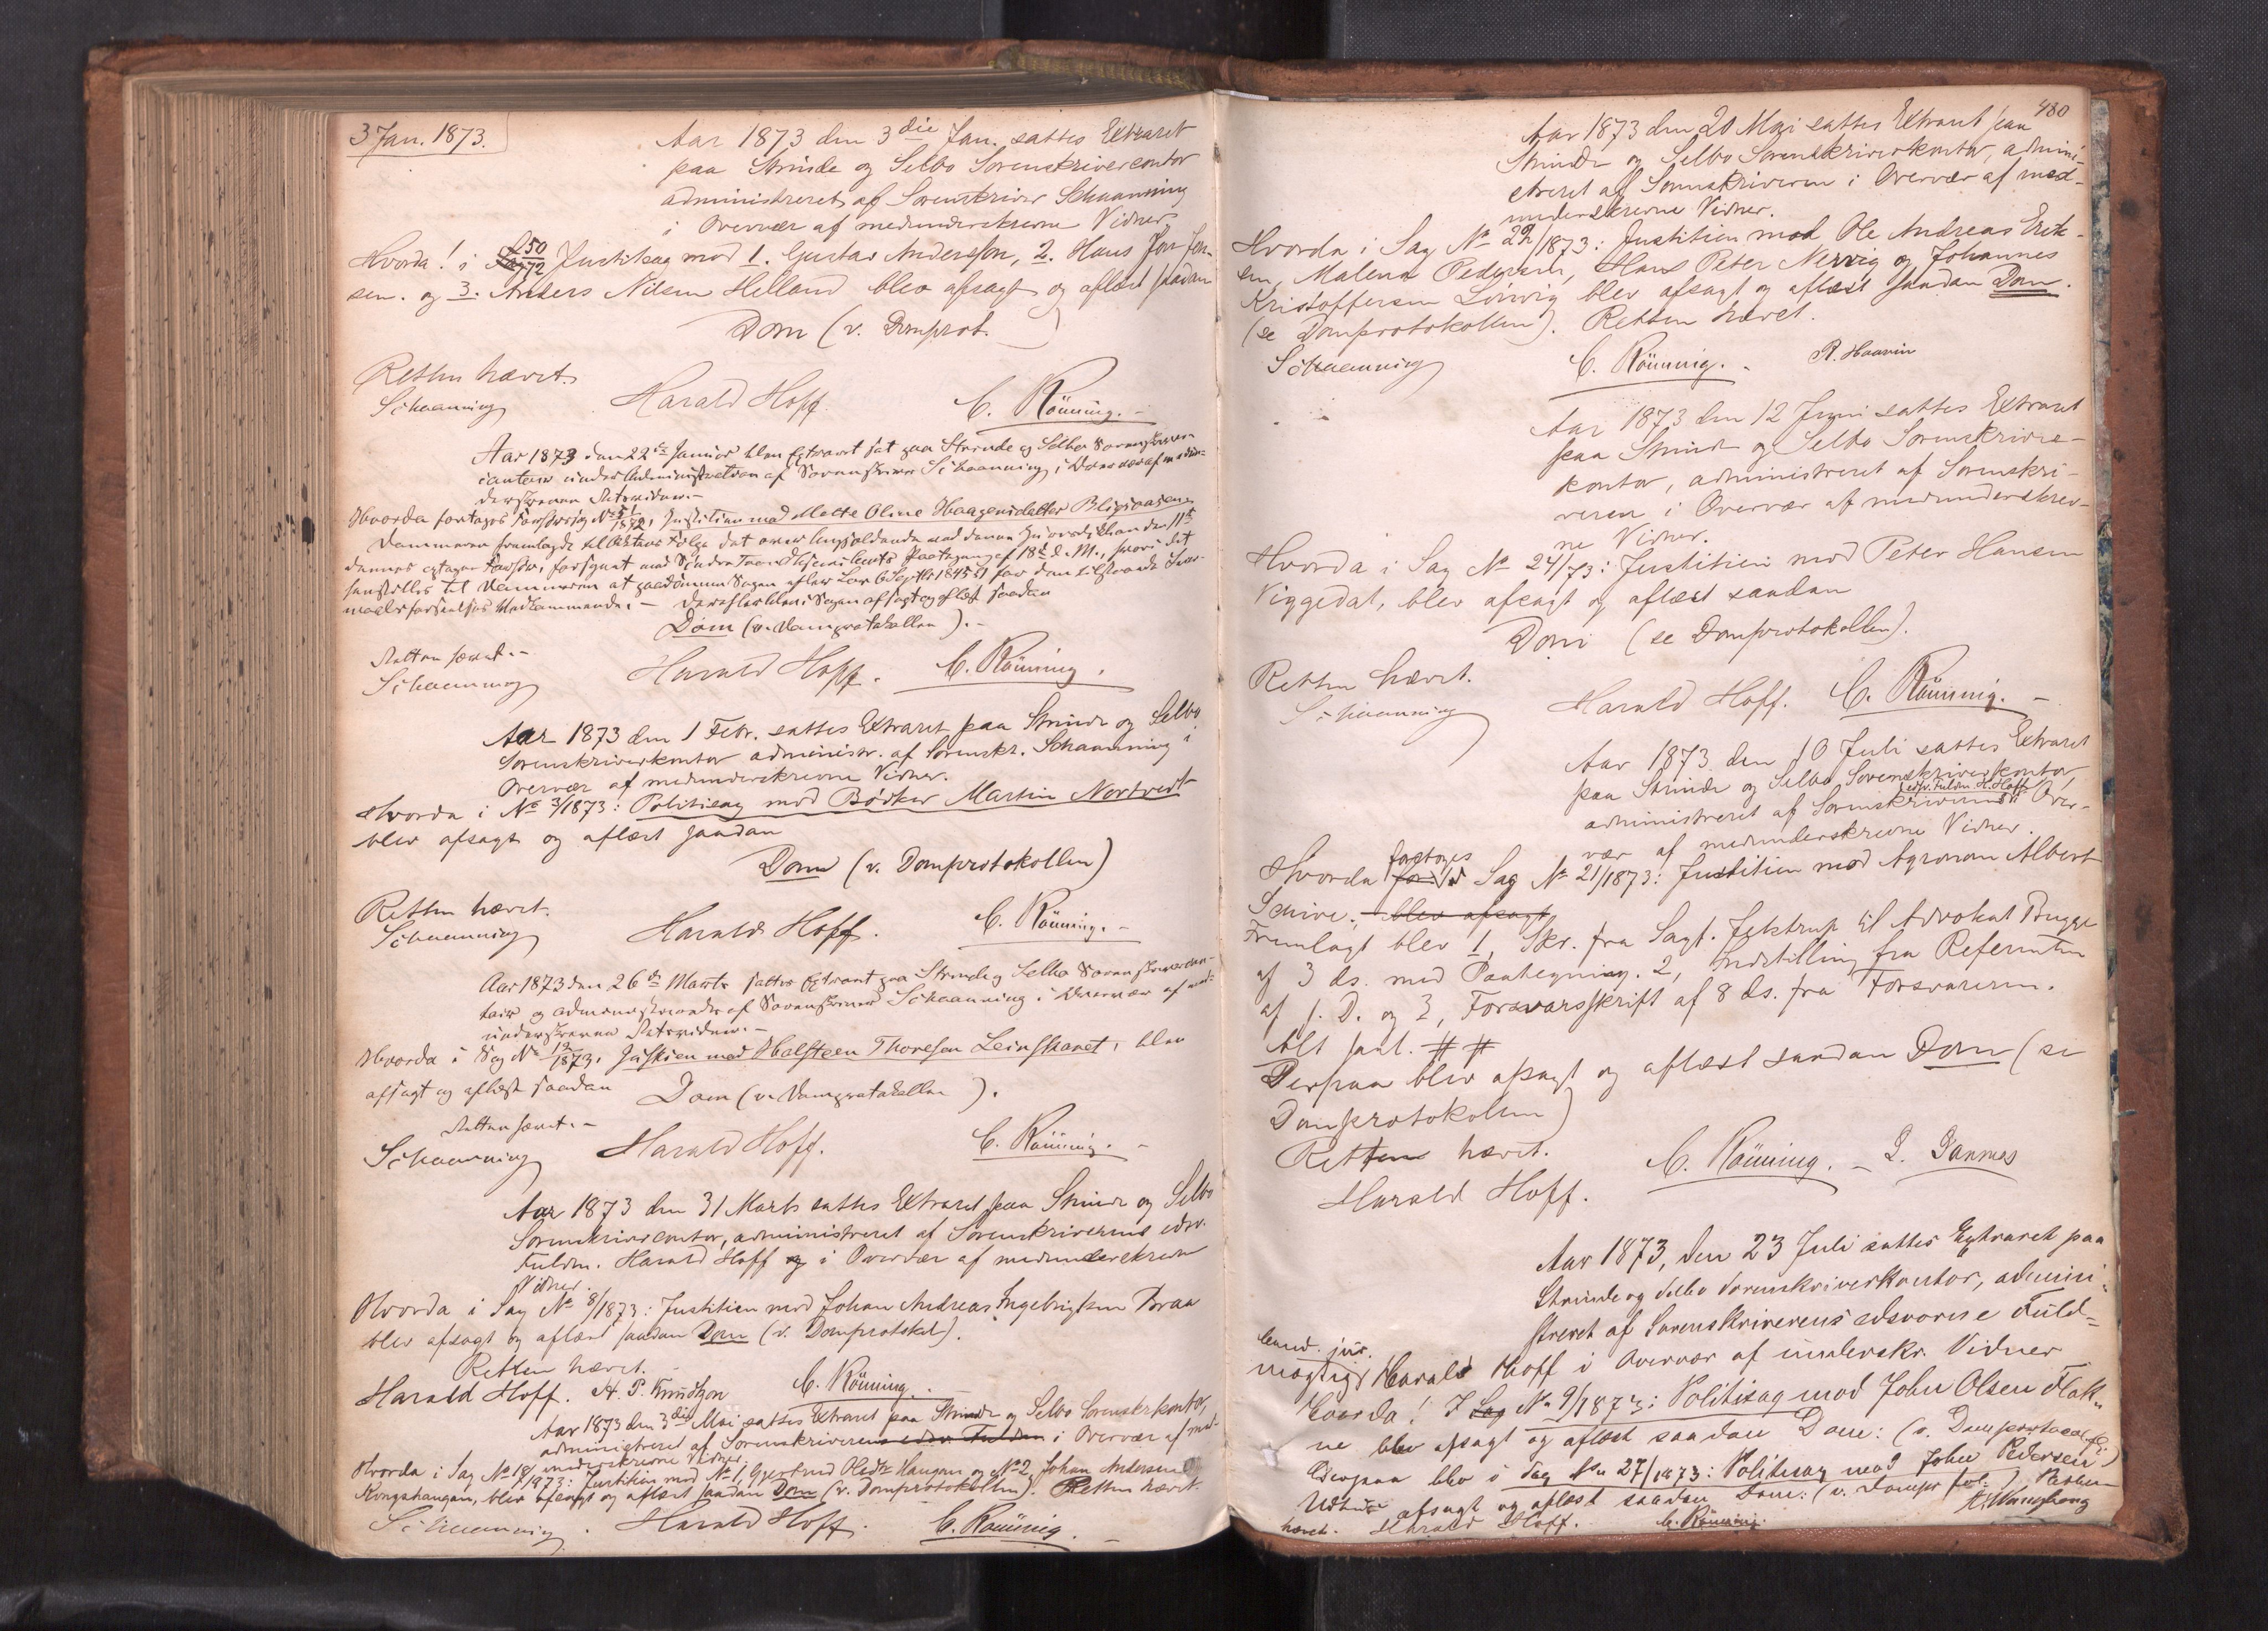 3 Jan. 1873.
Aar 1873 den 3die Jan. sattes Extraret
paa Strinde og Selbo Sorenskrivercontor
administreret af Sorenskriver Schaanning
i Overvær af medunderskrevne Vidner
Hvorda! i 50/72 Justitsag mod 1. Gustav Anderssen, 2. Hans Jon Jen-
sen. og 3. Anders Nilsen Helland blev afsagt og aflæst saadan
Dom (v. Domprot.
Retten hævet.
Schaanning Harald Hoff. C. Rönning.
Aar 1873 den 22de Januar blev Extraret sat paa Strinde og Selbo Sorenskriver-
contoir under Administration af Sorenskriver Schaanning i Overvær af medun-
derskrevne Retsvidner.
Hvorda foretoges Forhørssag No 51/1872, Justitien mod Mette Oline Haagensdatter Bligsaasen.
Dommeren fremlagde
Derefter blev i Sagen afsagt og aflæst saadan
Dom (v. Domprotokollen).
Retten hævet.
Schaanning Harald Hoff. C. Rönning.
Aar 1873 den 1 Febr. sattes Extraret paa Strinde og Selbo
Sorenskriverkontor administr. af Sorenskr. Schaanning i
Overvær af medunderskrevne Vidner.
Hvorda i No 3/1873: Politisag mod Bödker Martin Nertvedt
blev afsagt og aflæst saadan
Dom (v. Domprotokollen)
Retten hævet.
Schaanning Harald Hoff. C. Rönning.
Aar 1873 den 26de Marts sattes Extraret paa Strinde og Selbo Sorenskrivercon-
toir og administreredes af Sorenskriver Schaanning i Overvær af med-
underskrevne Retsvidner.
Hvorda i Sag No 12/1873, Justitien mod Halsteen Thoresen Leinskaret, blev
afsagt og aflæst saadan Dom (v. Domprotokollen).
Retten hævet.
Schaanning Harald Hoff. C. Rönning.
Aar 1873 den 31 Marts sattes Extraret paa Strinde og Selbo
Sorenskrivercontor, administreret af Sorenskriverens edsv.
Fuldm. Harald Hoff i Overvær af medunderskrevne
Vidner.
Hvorda i Sag No 8/1873: Justitien mod Johan Andreas Ingebrigtsen Braa
blev afsagt og aflæst saadan Dom (v. Domprotokol).
Retten hævet.
Harald Hoff. H. P. Knudtzon C. Rönning.
Aar 1873 den 3die Mai sattes Extraret paa Strinde og Selbo Sorenskrkontor,
administreret af Sorenskriverens edsv. Fuldm i Overvær af med-
underskrevne Vidner.
Hvorda i Sag No 18/1873: Justitien mod No 1, Gjertrud Olsdtr Haugen og No 2 Johan Andersen
Kongshaugen, blev afsagt og aflæst saadan Dom (v. Domprotokollen). Retten hævet.
Schaanning. Harald Hoff. C. Rönning.
480
Aar 1873 den 20 Mai sattes Extraret paa
Strinde og Selbo Sorenskriverkontor, admini-
streret af Sorenskriveren i Overvær af med-
underskrevne Vidner.
Hvorda i Sag No 22/1873: Justitien mod Ole Andreas Erik-
sen, Malena Pedersen, Hans Peter Nervig og Johannes
Kristoffersen Lövvig blev afsagt og aflæst saadan Dom.
(se Domprotokollen). Retten hævet.
Schaanning C. Rönning. R. Haavin
Aar 1873 den 12 Juni sattes Extraret
paa Strinde og Selbo Sorenskriver-
kontor, administreret af Sorenskri-
veren i Overvær af medunderskrev-
ne Vidner.
Hvorda i Sag No 24/73: Justitien mod Peter Hansen
Viggedal, blev afsagt og aflæst saadan
Dom (se Domprotokollen).
Retten hævet.
Schaanning Harald Hoff. C. Rönning.
Aar 1873 den 10 Juli sattes Extraret
paa Strinde og Selbo Sorenskriverkontor
administreret af Sorenskriverens edsv. Fuldm. H. Hoff i Over-
vær af medunderskrevne Vidner.
Hvorda foretoges Sag No 21/1873: Justitien mod Agronom Albert
Schive. blev afsagt
Fremlagt blev 1, Skr. fra Sagf. Jelstrup til Advokat Bugge
af 3 ds. med Paategning. 2, Indstilling fra Referenten
af s. D. og 3, Forsvarsskrift af 8 ds. fra Forsvareren.
Alt saal. # #
Derpaa blev afsagt og aflæst saadan Dom (se
Domprotokollen)
Retten hævet.
Harald Hoff. C. Rönning. L. Dannes
Aar 1873, den 23 Juli sattes Extraret paa
Strinde og Selbo Sorenskriverkontor, admini-
streret af Sorenskriverens edsvorne Fuld-
mægtig Cand. jur. Harald Hoff i Overvær af underskr. Vidner
Hvorda! I Sag No 9/1873: Politisag mod John Olsen Flak-
ne blev afsagt og aflæst saadan Dom: (v. Domprotocol)
Derpaa blev i Sag No 27/1873: Politisag mod John Pedersen
afsagt og aflæst saadan Dom: (v. Dompr.) Retten
hævet. Harald Hoff. C. Rönning.